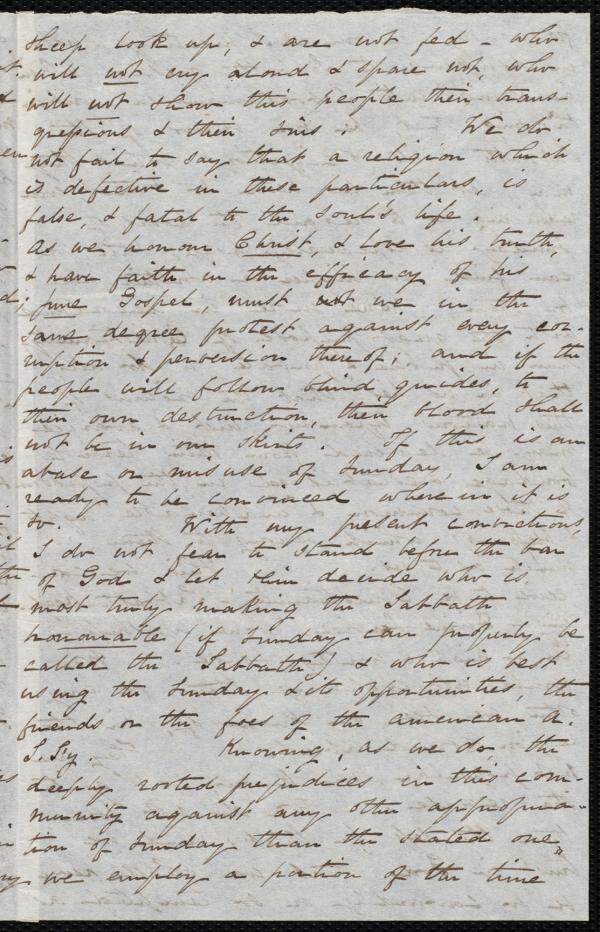 sheep look up, & are not fed – who
will not cry aloud & spare not, who
will not show this people their trans-
gressions & their sins; We do
not fail to say that a religion which
is defective in these particulars, is
false, & fatal to the soul's life.
As we honour Christ, & love his truth,
& have faith in the efficacy of his
pure Gospel, must not we in the
same degree protest against every cor-
ruption & perversion thereof; and if the
people will follow blind guides, to
their own destruction, their blood shall
not be in our skirts. If this is an
abuse or misuse of Sunday, I am
ready to be convinced wherein it is
so. With my present convictions,
I do not fear to stand before the bar
of God & let Him decide who is
most truly making the Sabbath
honourable (if Sunday can properly be
called the Sabbath) & who is best
using the Sunday & its opportunities, the
friends or the foes of the American A.
S. Sy. Knowing, as we do the
deeply rooted prejudices in this com-
munity against any other appropria-
tion of Sunday than the stated one,
we employ a portion of the time